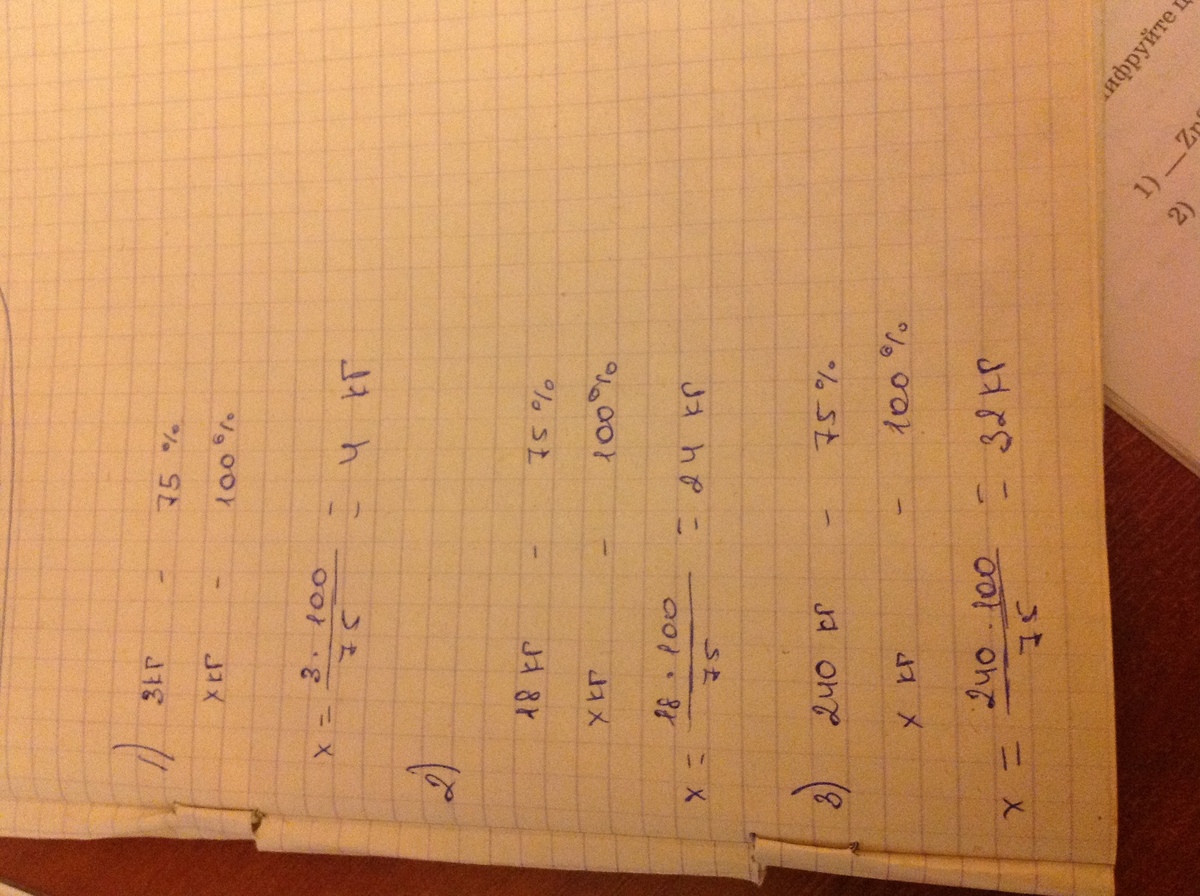 1) 3кг - 75%
xкг - 100%
x = 3 · 100 / 75 = 4 кг
2)
18 кг - 75%
x кг - 100%
x = 18 · 100 / 75 = 24 кг
3) 240 кг - 75%
x кг - 100%
x = 240 · 100 / 75 = 32 кг
1)
2)